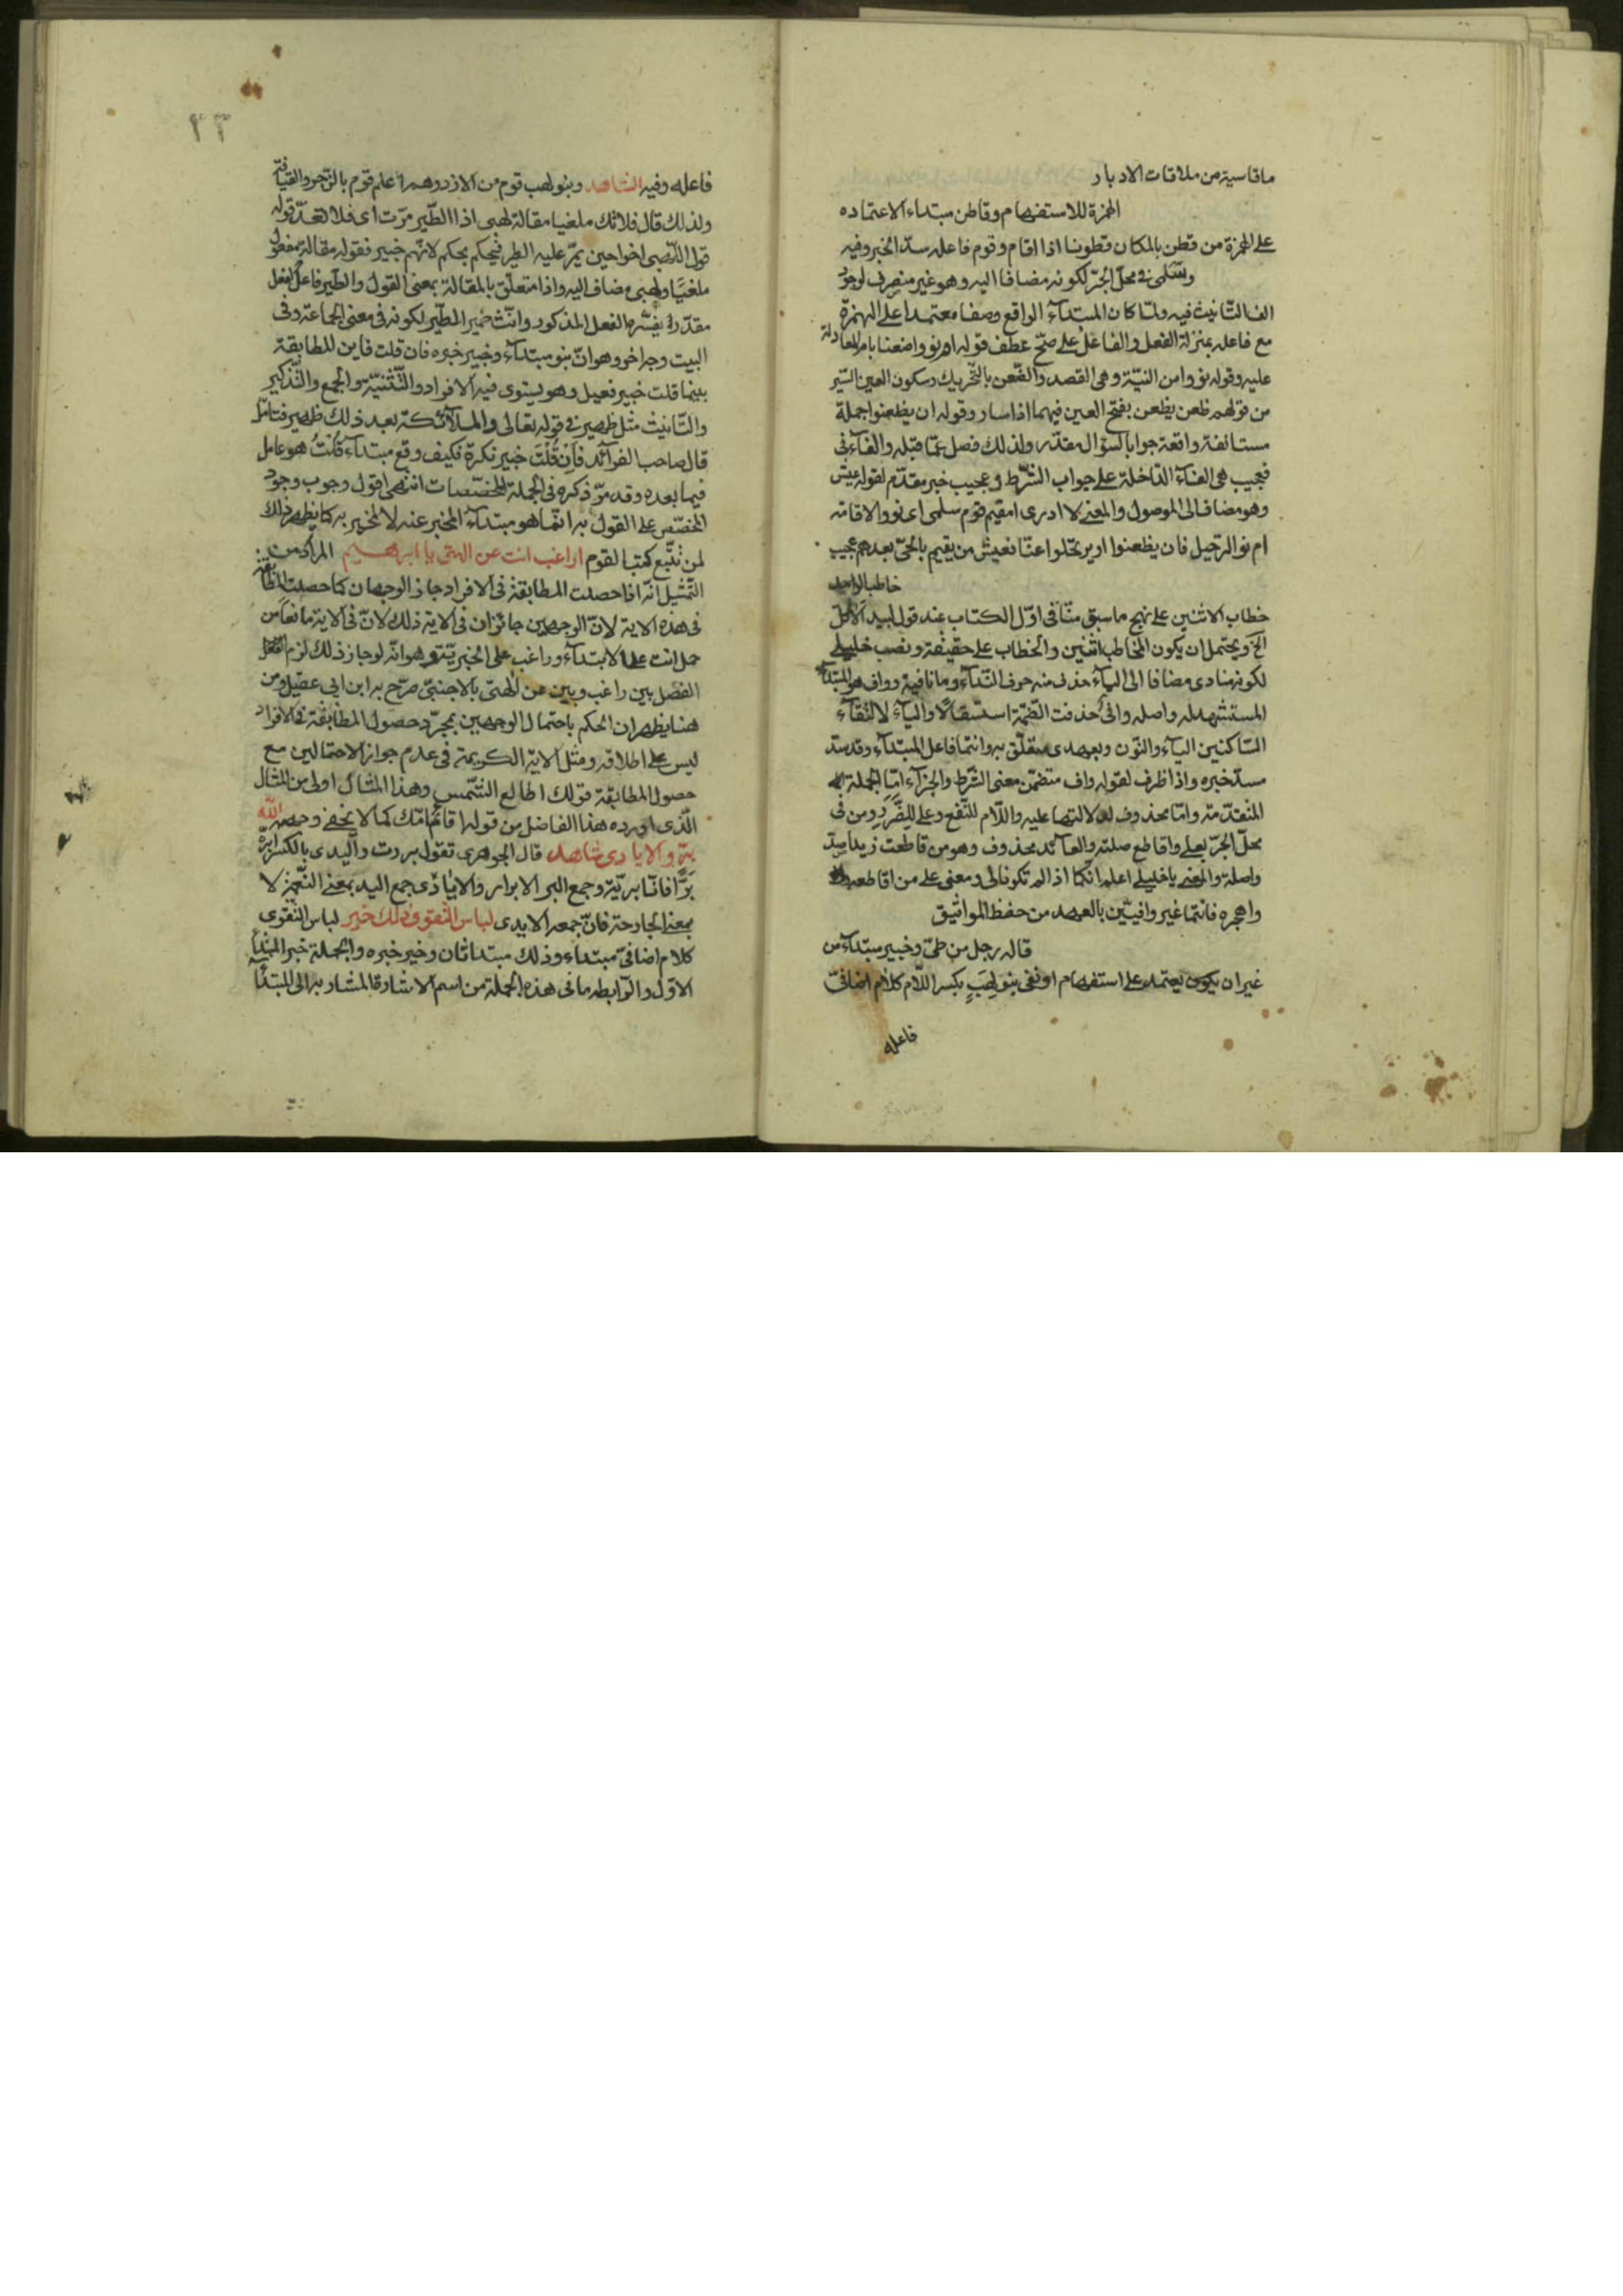 ما قاسيته من ملاقات الادبار
الهمزة للاستفهام وقاطن مبتداء لاعتماده
على الهمزة من قطن بالمكان قطونا اذا اقام وقوم فاعله سدّ الخبر وفيه
وسلمى فى محلّ الجرّ لكونه مضافا اليه وهو غير منصرف لوجود
الف التّانيث فيه ولمّا كان المبتدآء الواقع وصفا معتمدا على الهمزة
مع فاعله بمنزلة الفعل والفاعل على صحّ عطف قوله ام نووا ضعنا بام المعادلة
عليه وقوله نووا من النيّة وهى القصد والظّعن بالتّحريك وسكون العين السّير
من قولهم ظعن يظعن بفتح العين فيهما اذا سار وقوله ان يظعنوا جملة
مستانفة واقعة جوابا لسؤال مقدّر ولذلك فصل عمّا قبله والفآء فى
فعجيب هى الفآء الدّاخلة على جواب الشّرط وعجيب خبر مقدّم لقوله عيش
وهو مضاف الى الموصول والمعنى لا ادرى امقيم قوم سلمى ام نووا الاقامة
ام نوا الرّحيل فان يظعنوا اويرتحلوا عنّا فعيش من يقيم بالحىّ بعدهم عجيب
خاطب الواحد
خطاب الاثنين على نهج ما سبق منّا فى اوّل الكتاب عند قول لبيد الاكلّ
الخ ويحتمل ان يكون المخاطب اثنين والخطاب على حقيقته ونصب خليلى
لكونه منادى مضافا الى اليآء حذف منه حرف النّدآء وما نافية وواف هو المبتدآء
المستشهد له واصله وافىٌ حذفت الضّمّة استثقالا واليآء لالتقآء
السّاكنين اليآء والنّون وبعهدى متعلّق به وانتما فاعل المبتدآء وقد سدّ
مسدّ خبره واذا ظرف لقوله واف متضمّن معنى الشّرط والجزآء امّا الجملة
المتقدّمة وامّا محذوف لدلالتها عليه واللّام للنّفع وعلى للضّرر ومن فى
محلّ الجرّ بعلى واقاطع صلته والعآئد محذوف وهو من قاطعت زيدا ضدّ
واصلة والمعنى يا خليلى اعلما انّكما اذا لم تكونا لى ومعنى على من اقاطعه
واهجره فانتما غير وافيّين بالعهد من حفظ المواثيق
قاله رجل من طىّ وخبير مبتدآء من
غير ان يكون يعتمد على استفهام او نفى بنو لِهبٍ بكسر اللّام كلام اضافىّ
فاعله
٢٣
فاعله وفيه الشاهد وبنو لهب قوم من الازد وهم اعلم قوم بالزّجر والقيافة
ولذلك قال فلا تك ملغيا مقالة لهبى اذا الطّير مرّت اى فلا تعدّ قوله
قول اللّهبى اخوا حين يمرّ عليه الطير فيحكم بحكم لانّهم خبير فقوله مقالة مفعول
ملغيًا ولهبى مضاف اليه واذا متعلّق بالمقالة بمعنى القول والطّير فاعل لفعل
مقدّر يفسّره الفعل المذكور وانّث ضمير الطّير لكونه فى معنى الجماعة وفى
البيت وجه اخر وهو انّ بنو مبتدآء وخبير خبره فان قلت فاين المطابقة
بينهما قلت خبير فعيل وهو يستوى فيه الافراد والتّثنيّة والجمع والتّذكير
والتّانيث مثل ظهير فى قوله تعالى والملآئكة بعد ذلك ظهير فتامّل
قال صاحب الفوآئد فاِن قُلْتَ خبير نكرة فكيف وقع مبتدآء قُلْتُ هو عامل
فيما بعده وقد مرّ ذكره فى الجملة المخصّصات انتهى اقول وجوب وجود
المخصّص على القول به انّما هو مبتدآء المخبر عنه لا المخبر به كما يظهر ذلك
لمن تتبّع كتب القوم اراغب انت عن الهتى يا ابراهيم المراد من
التّمثيل انّه اذا حصلت المطابقة فى الافراد جاز الوجهان كما حصلت المطابقة
فى هذه الاية لانّ الوجهين جائزان فى الاية ذلك لانّ فى الاية مانعا من
حمل انت على الابتدآء وراغب على الخبريّة وهو انّه لو جاز ذلك لزم
الفصل بين راغب وبين عن الهتى بالاجنبىّ صرّح به ابن ابى عقيل ومن
هنا يظهر ان الحكم باحتمال الوجهين بمجرّد حصول المطابقة فى الافراد
ليس على اطلاقه ومثل الاية الكريمة فى عدم جواز الاحتمالين مع
حصول المطابقة قولك اطالع الشّمس وهذا المثال اولى من المثال
الّذى اورده هذا الفاضل من قوله اقائم امّك كما لا يخفى وحسبه اللّه
برّ والايادى شاهد قال الجوهرى تقول بررت والدى بالكسر ابرّه
بَرًّا فانا برّ به وجمع البر الابرار والايادى جمع اليد بمعنى النّعمة لا
بمعنى الجارحة فانّ جمعه الايدى لباس التّقوى ذلك خير لباس التّقوى
كلام اضافىّ مبتداء وذلك مبتدا ثان وخير خبره والجملة خبر المبتدأ
الاوّل والرّابطه ما فى هذه الجملة من اسم الاشارة المشار به الى المبتدأ